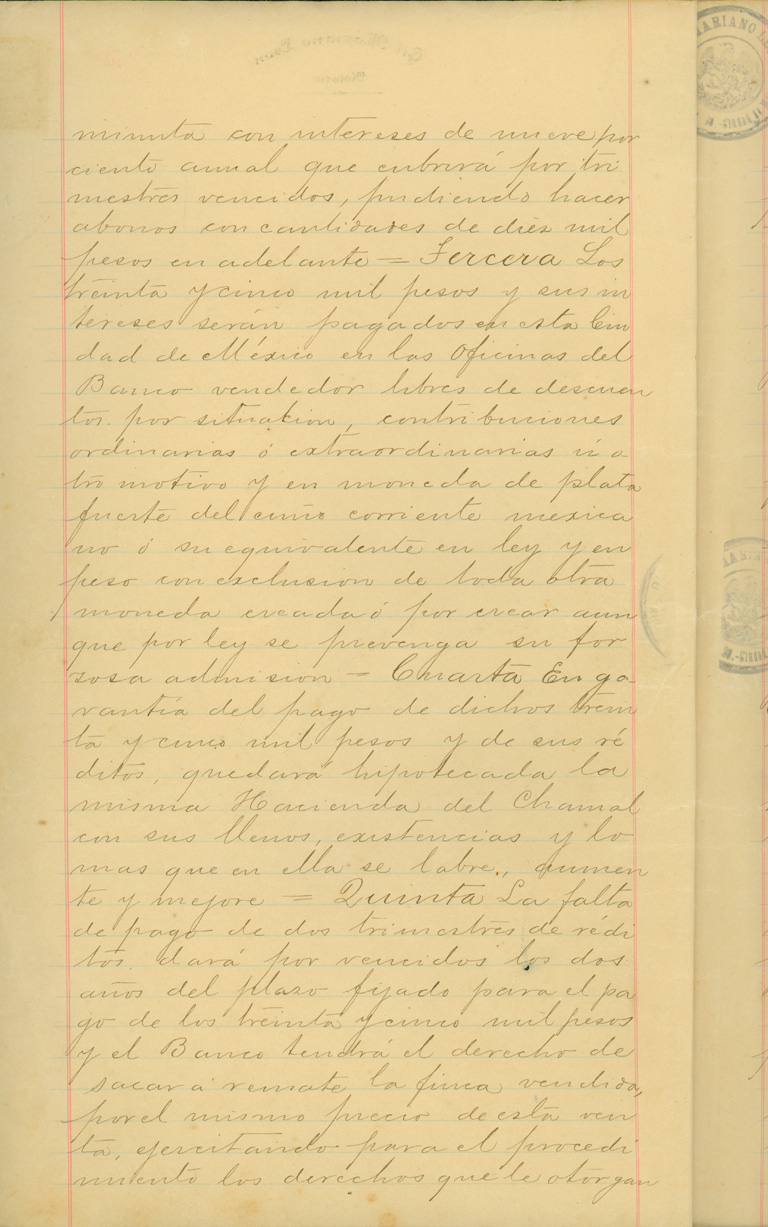 MARIANO LE
minuta con intereses de nueve por
ciento anual que cubrirá por tri
mestres vencidos, pudiendo hacer
abonos con cantidades de diez mil
pesos en adelante = Tercera Los
treinta y cinco mil pesos y sus in
tereses serán pagados en esta Ciu
dad de México en las Oficinas del
Banco vendedor libres de descuen
tos por situacion, contribuciones
ordinarias ó extraordinarias ú o
tro motivo y en moneda de plata
fuerte del cuño corriente mexica
no ó su equivalente en ley y en
peso con exclusion de toda otra
moneda creada ó por crear aun
que por ley se prevenga su for
zosa admision = Cuarta En ga
rantía del pago de dichos trein
ta y cinco mil pesos y de sus ré
ditos, quedará hipotecada la
misma Hacienda del Chamal
con sus llenos, existencias y lo
mas que en ella se labre, aumen
te y mejore = Quinta La falta
de pago de dos trimestres de rédi
tos dará por vencidos los dos
años del plazo fijado para el pa
go de los treinta y cinco mil pesos
y el Banco tendrá el derecho de
sacar á remate la finca vendida,
por el mismo precio de esta ven
ta, ejercitando para el procedi
miento los derechos que le otorgan